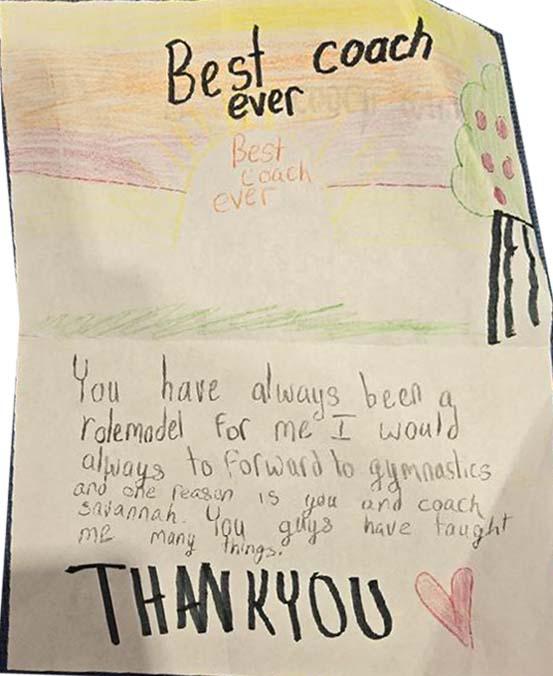 Best coach
ever
Best
coach
ever
You have always been a
rolemodel for me I would
always to forward to gymnastics
and one reason is you and coach
savannah. You guys have taught
me many things.
THANKYOU